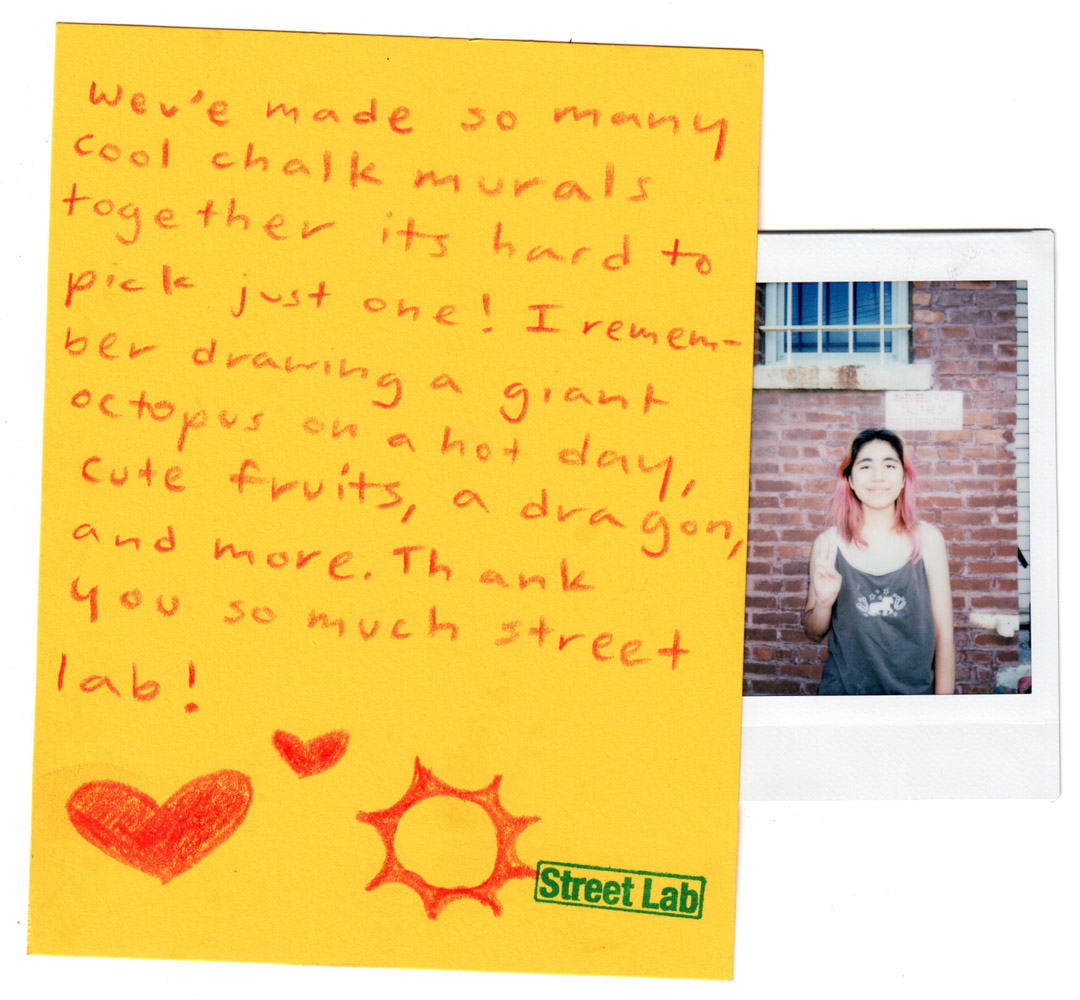 Wev'e made so many
cool chalk murals
together its hard to
pick just one! I remem-
ber drawing a giant
octopus on a hot day,
cute fruits, a dragon,
and more. Thank
you so much street
lab!
Street Lab